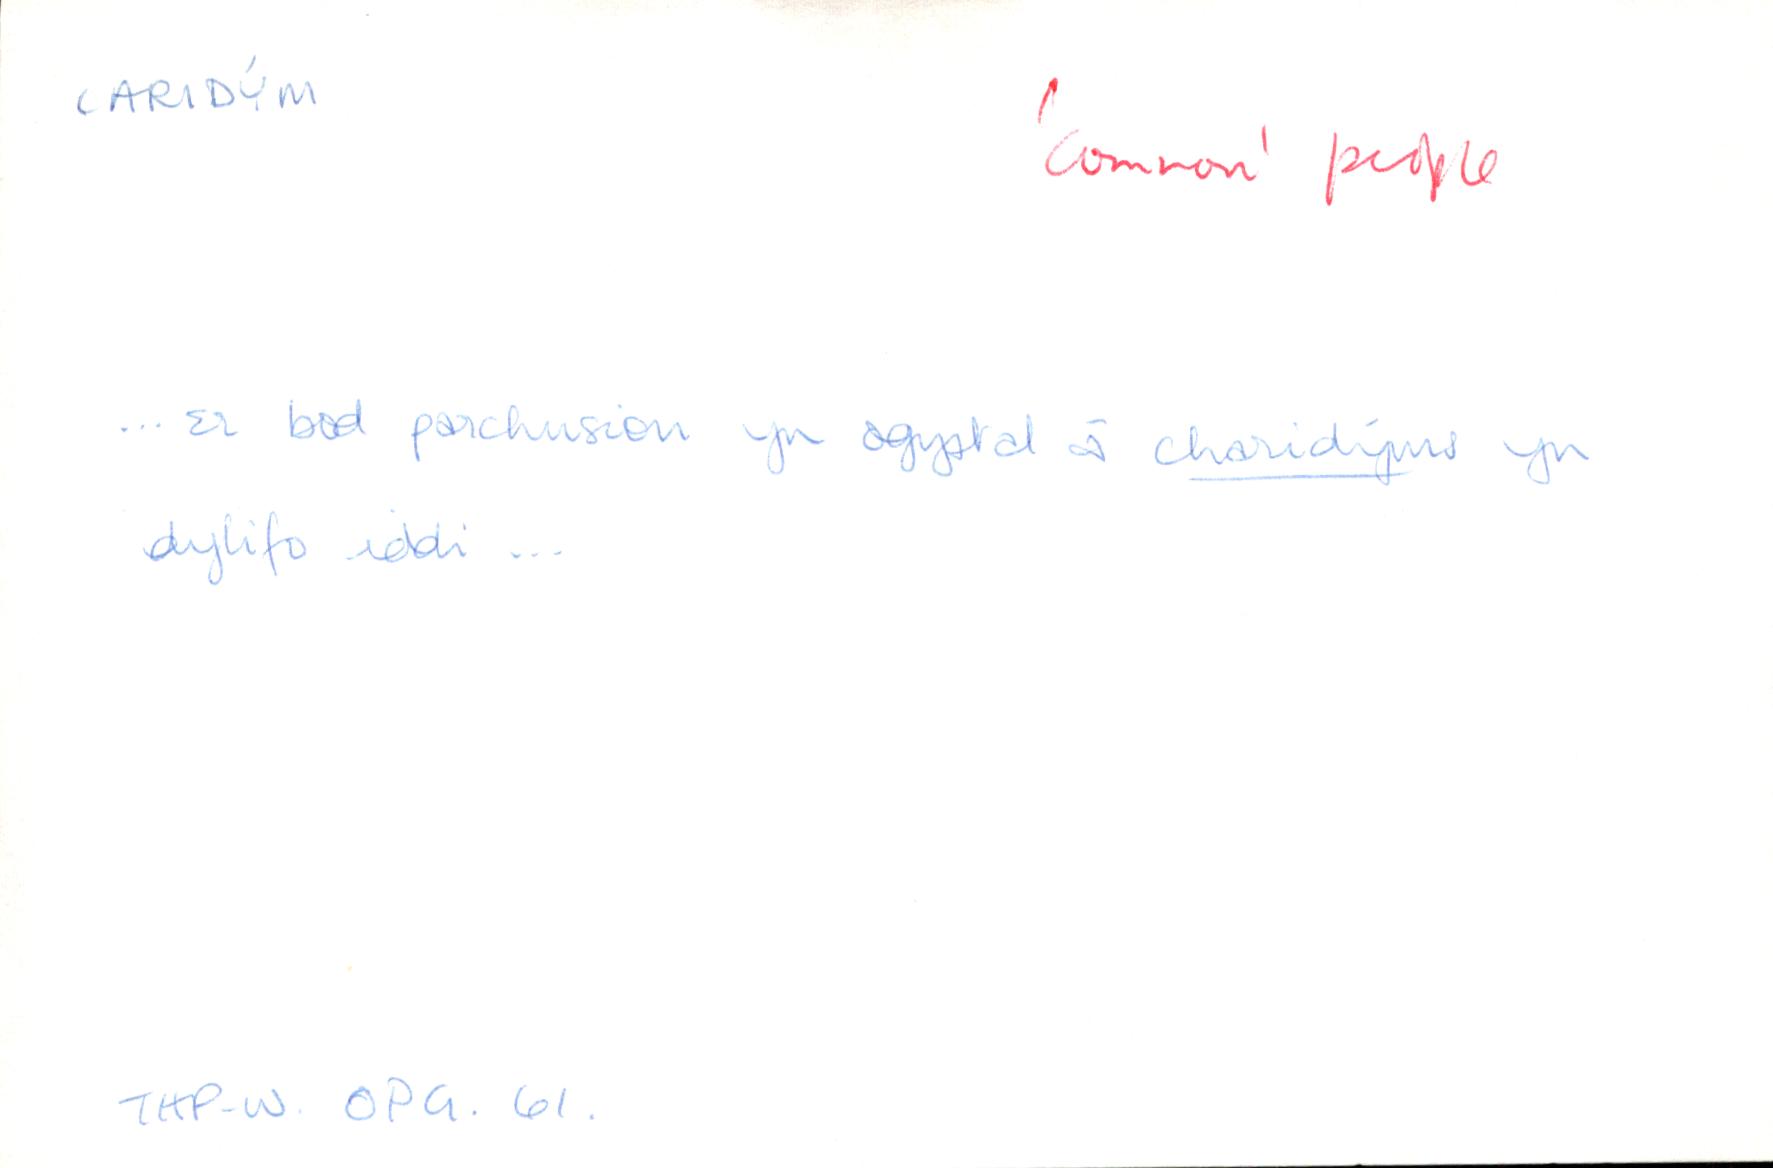 CARIDÝM
'Common' people
... Er bod parchusion yn ogystal â charidýms yn
dylifo iddi ...
THP-W. OPG. 61.